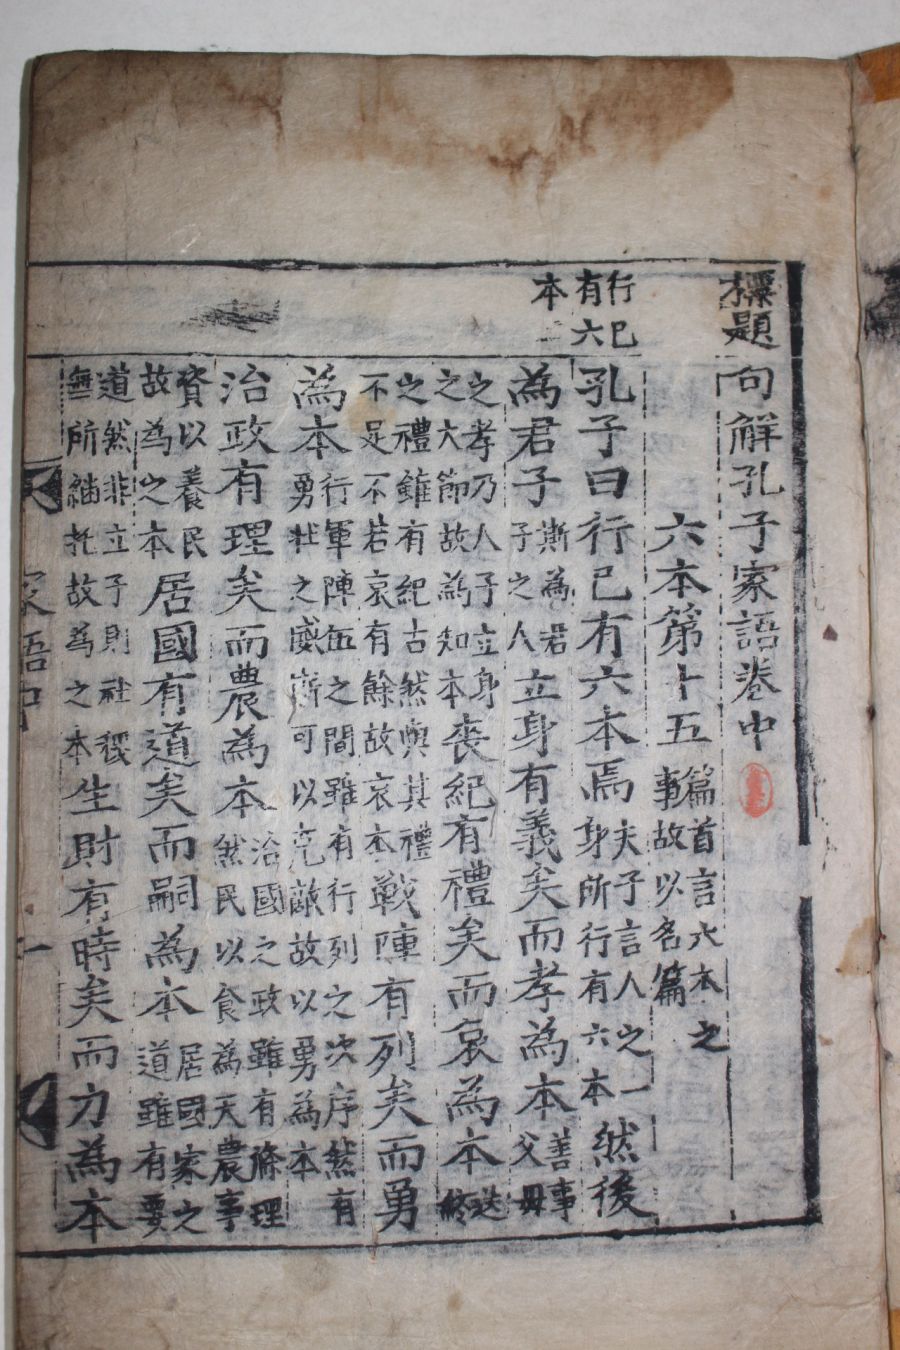 標題句解孔子家語卷中
六本第十五 篇首言六本之
事故以名篇
行己
有六
本
孔子曰行己有六本焉 夫子言人之一
身所行有六本 然後
為君子 斯為君
子之人 立身有義矣而孝為本 善事
父母
之孝乃人子立身
之大節故為知本 喪紀有禮矣而哀為本 送
終
之禮雖有紀古然與其禮
不足不若哀有餘故哀本 戰陣有列矣而勇
為本 行軍陣伍之間雖有行列之次序然有
勇壯之威斯可以克敵故以勇為本
治政有理矣而農為本 治國之政雖有條理
然民以食為天農事
資以養民
故為之本 居國有道矣而嗣為本 居國家之
道雖有要
道然非立子則社稷
無所繼托故為之本 生財有時矣而力為本
家語中 一